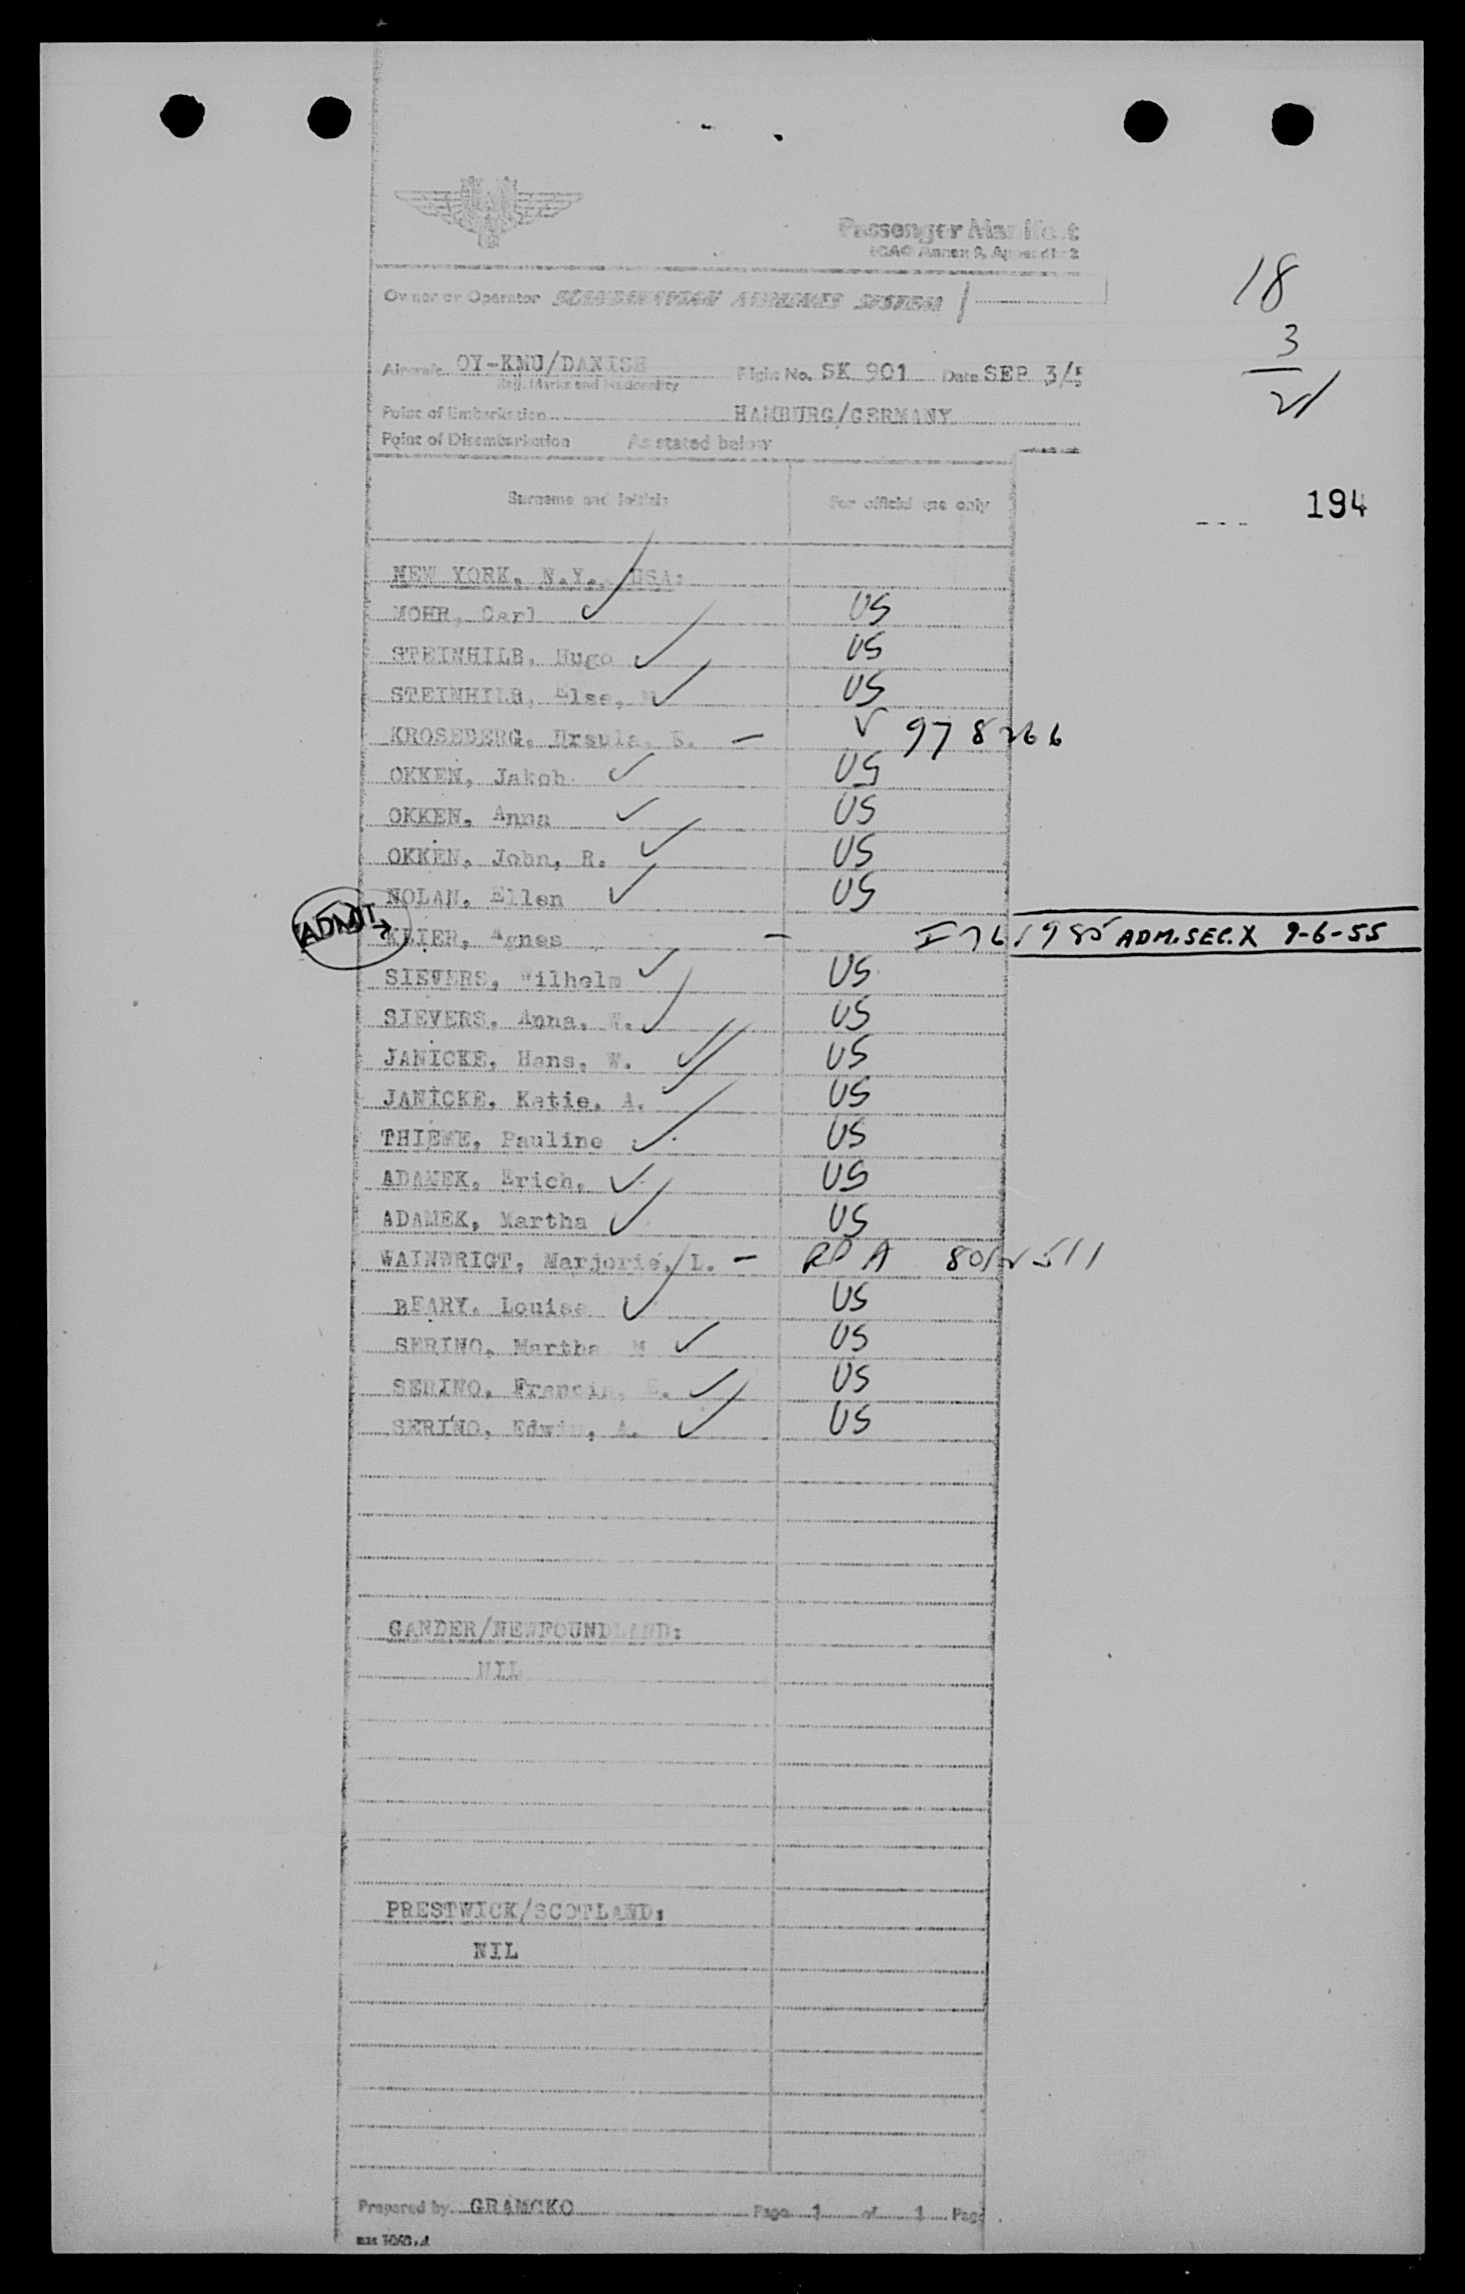 Passenger Manifest
ICAO Annex 9, Appendix 2
Owner or Operator SCANDINAVIAN AIRLINES SYSTEM
18
3
21
Aircraft OY-KMU/DANISH Flight No. SK 901 Date SEP 3/5
Reg. Marks and Nationality
Point of Embarkation HAMBURG/GERMANY
Point of Disembarkation As stated below
Surname and initials For official use only
194
NEW YORK, N.Y., USA:
MOHR, Carl US
STEINHILB, Hugo US
STEINHILB, Else, US
KROSEBERG, Ursula, V 978266
OKKEN, Jakob US
OKKEN, Anna US
OKKEN, John, R. US
NOLAN, Ellen US
ADMIT KLIER, Agnes ADM. SEC. X 9-6-55
SIEVERS, Wilhelm US
SIEVERS, Anna, W. US
JANICKE, Hans, W. US
JANICKE, Katie, A. US
THIEME, Pauline US
ADAMEK, Erich, US
ADAMEK, Martha US
WAINWRIGT, Marjorie, L. RP A
BEARY, Louise US
SERINO, Martha M US
SERINO, Francis, US
SERINO, Edwin, A. US
GANDER/NEWFOUNDLAND:
NIL
PRESTWICK/SCOTLAND:
NIL
Prepared by GRAMCKO Page 1 of 1 Pag